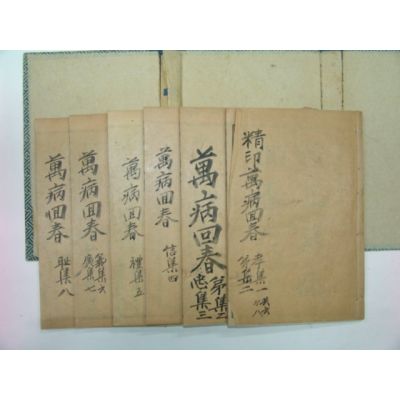 精印萬病回春
孝集一
第集二
萬病回春
第集二
忠集三
萬病回春
信集四
萬病回春
禮集五
萬病回春
集六
廉集七
萬病回春
耻集八